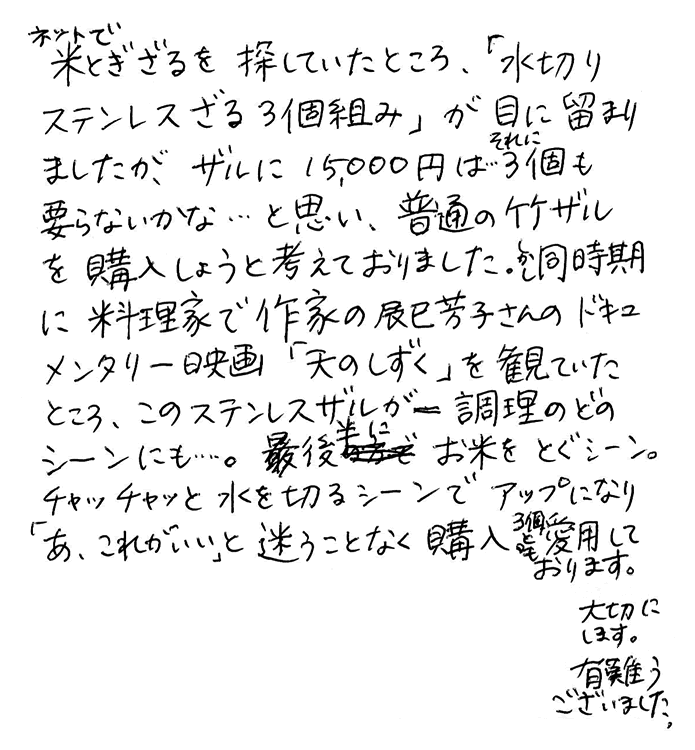 ネットで
米とぎざるを 探していたところ、「水切り
ステンレスざる3個組み」が 目に留まり
ましたが、ザルに 15,000円は…それに3個も
要らないかな…と思い、普通の竹ザル
を購入しようと考えておりました。しかし同時期
に 料理家で作家の辰巳芳子さんの ドキュ
メンタリー映画「天のしずく」を観ていた
ところ、このステンレスザルがー調理のどの
シーンにも…。最後半に お米をとぐシーン。
チャッチャッと水を切るシーンで アップになり
「あ、これがいい」と迷うことなく購入 3個とも愛用して
おります。
大切に
します。
有難う
ございました。